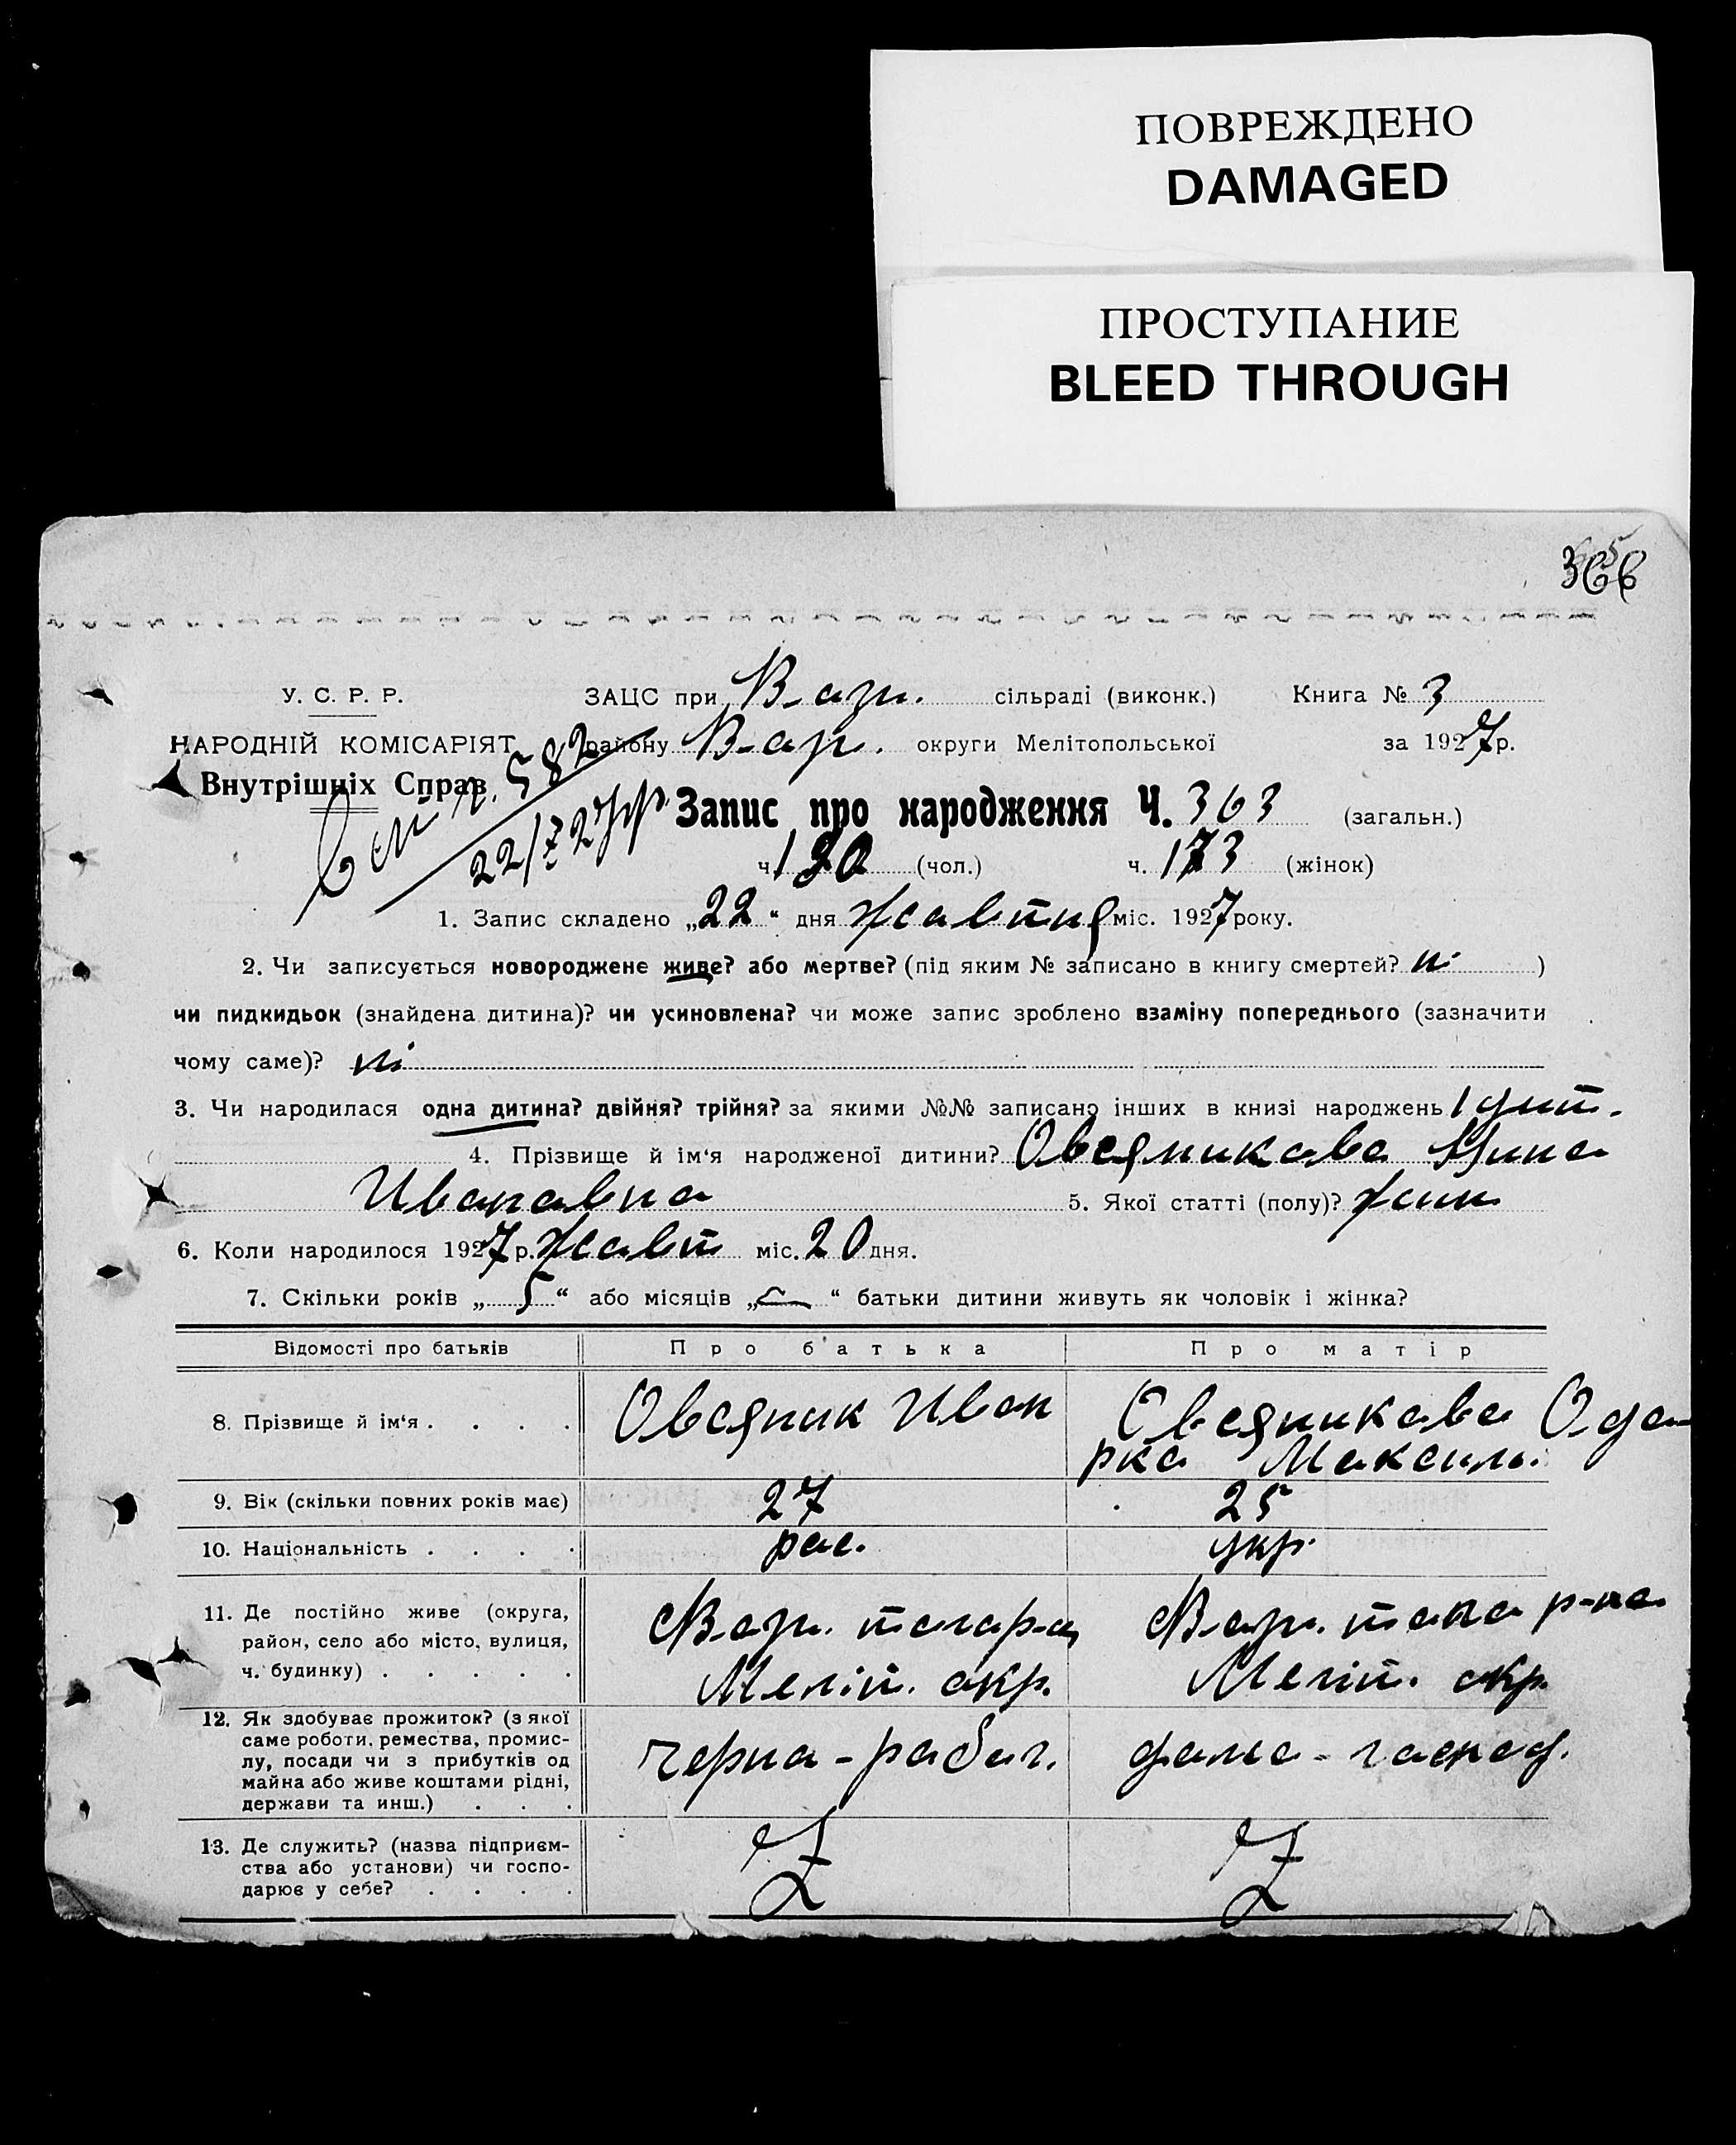 ПОВРЕЖДЕНО
DAMAGED
ПРОСТУПАНИЕ
BLEED THROUGH
366
У. С. Р. Р. ЗАЦС при сільраді (виконк.) Книга № 3
НАРОДНІЙ КОМІСАРІЯТ району округи Мелітопольської за 1927 р.
Внутрішніх Справ
582
Запис про народження Ч. 363 (загальн.)
ч. 190 (чол.) ч. 173 (жінок)
1. Запис складено „22“ дня жовтня міс. 1927 року.
2. Чи записується новороджене живе? або мертве? (під яким № записано в книгу смертей? ні )
чи пидкидьок (знайдена дитина)? чи усиновлена? чи може запис зроблено взаміну попереднього (зазначити
чому саме)? ні
3. Чи народилася одна дитина? двійня? трійня? за якими №№ записано інших в книзі народжень 1 дит.
4. Прізвище й ім‘я народженої дитини? Овсяникова Нина
Ивановна 5. Якої статті (полу)? жин
6. Коли народилося 1927 р. жовт міс. 20 дня.
7. Скільки років „5“ або місяців „—“ батьки дитини живуть як чоловік і жінка?
Відомості про батьків Про батька Про матір
8. Прізвище й ім‘я . . . . Овсяник Иван Овсяникова Ода-
рка Максим.
9. Вік (скільки повних років має) 27 25
10. Національність . . . . рос. укр.
11. Де постійно живе (округа,
район, село або місто, вулиця,
ч. будинку) . . . . . Меліт. окр. Меліт. окр.
12. Як здобуває прожиток? (з якої
саме роботи, ремества, промис-
лу, посади чи з прибутків од
майна або живе коштами рідні,
держави та инш.) . . . черна-рабоч. дома-господ.
13. Де служить? (назва підприєм-
ства або установи) чи госпо-
дарює у себе? . . . .